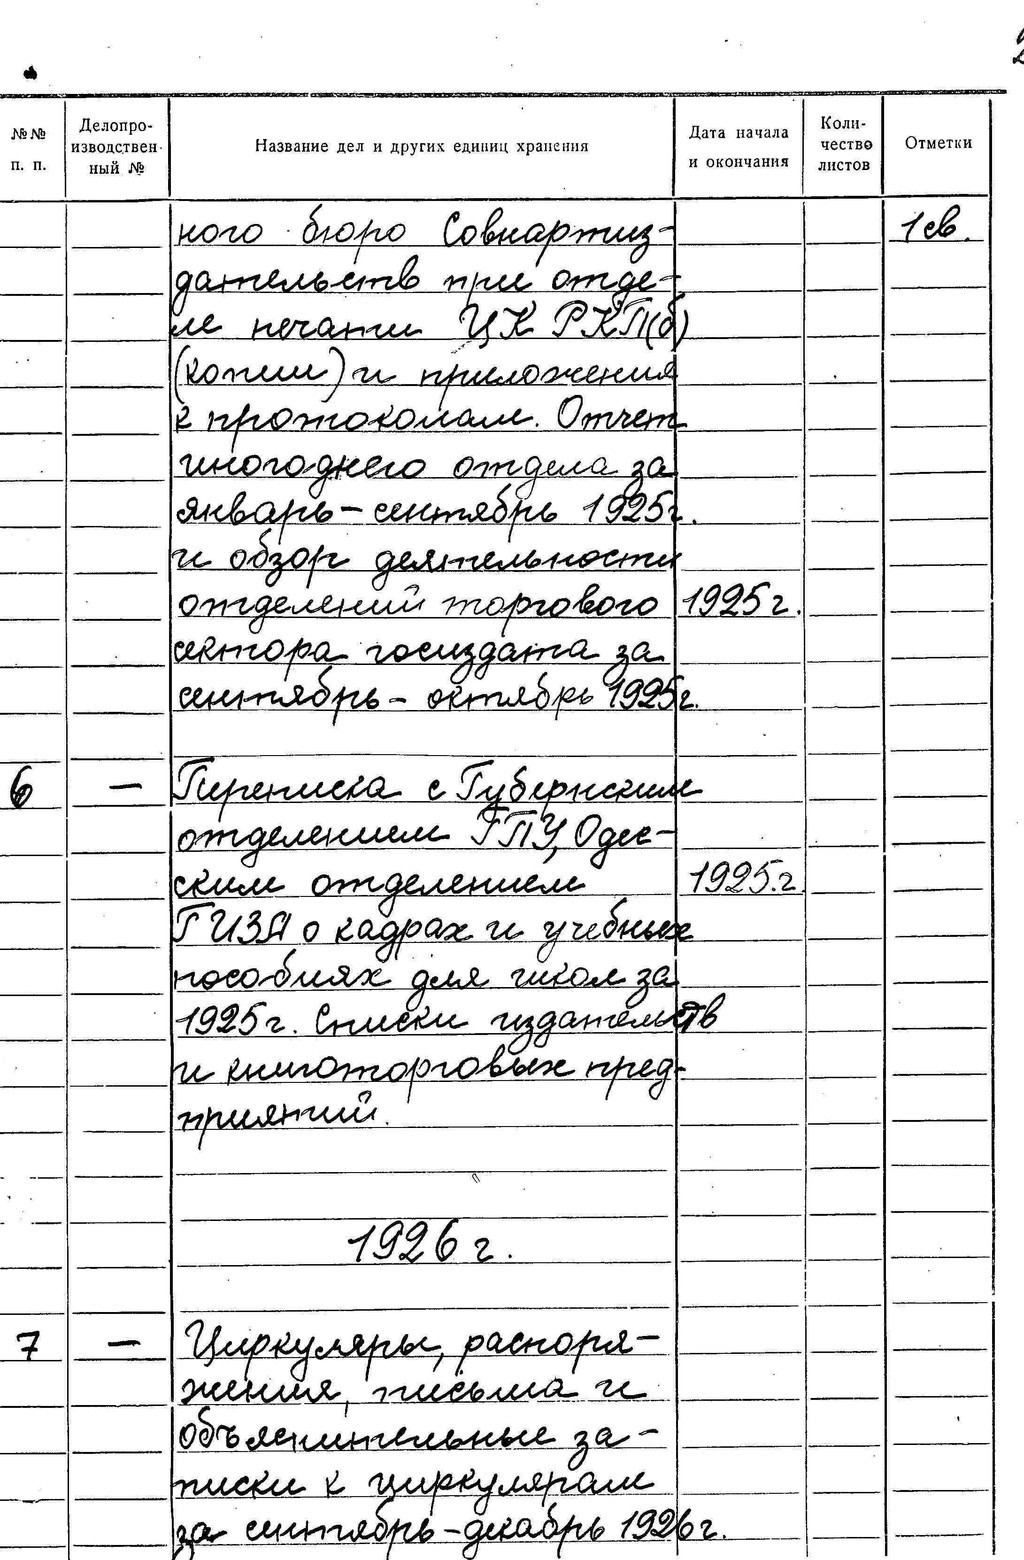 №№ п. п. | Делопро-изводствен-ный № | Название дел и других единиц хранения | Дата начала и окончания | Коли-чество листов | Отметки
ного бюро Совпартиз- 1 св.
дательств при отде-
ле печати ЦК РКП(б)
(копии) и приложения
к протоколам. Отчет
иногоднего отдела за
январь – сентябрь 1925г.
и обзор деятельности
отделений торгового 1925г.
сектора госиздата за
сентябрь – октябрь 1925г.
6 — Переписка с Губернским
отделением ГПУ, Одес-
ским отделением 1925.г
ГИЗА о кадрах и учебных
пособиях для школ за
1925г. Списки издательств
и книготорговых пред-
приятий.
1926 г.
7 — Циркуляры, распоря-
жения, письма и
объяснительные за-
писки к циркулярам
за сентябрь – декабрь 1926г.